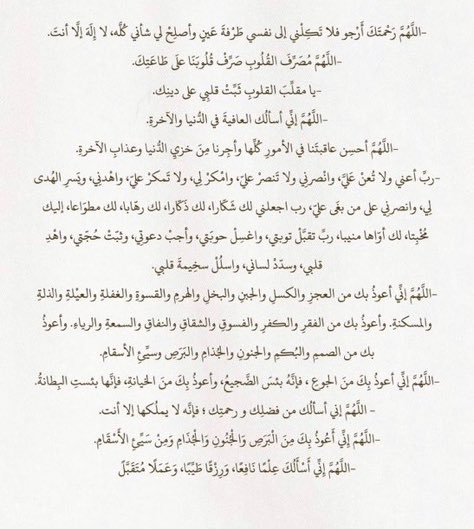 -اللَّهُمَّ رَحْمَتَكَ أَرْجو فلا تَكِلْني إلى نفسي طَرْفةَ عَينٍ وأصلِحْ لي شأني كُلَّه، لا إِلَهَ إلَّا أنتَ.
-اللَّهُمَّ مُصَرِّفَ القُلوبِ صَرِّفْ قُلُوبَنَا علَى طَاعَتِكَ.
-يا مقلِّبَ القلوبِ ثَبِّتْ قلبِي على دينِك.
-اللَّهُمَّ إنِّي أسألُك العافيةَ في الدُّنيا والآخرةِ.
-اللَّهُمَّ أحسِن عاقبتَنا في الأمورِ كُلِّها وأجِرنا مِنَ خزيِ الدُّنيا وعذابِ الآخرةِ.
-ربِّ أعني ولا تُعنْ عَليَّ، وانْصرنِي ولا تَنصرْ عليَّ، وامْكرْ لِي، ولا تَمكرْ عليَّ، واهْدني، ويَسرِ الهُدى
لِي، وانصرني على من بغَى عليَّ، رب اجعلني لك شَكَّارا، لك ذَكَّارا، لك رهَابا، لك مطوَاعا، إليك
مُخْبِتا، لك أوَّاها منيبا، ربِّ تقبَّلْ توبتي، واغسِلْ حوبَتي، وأجبْ دعوتي، وثبِّتْ حُجَّتي، واهْدِ
قلبي، وسدّدْ لساني، واسلُلْ سخِيمةَ قلبي.
-اللَّهُمَّ إنِّي أعوذُ بك من العجزِ والكسلِ والجبنِ والبخلِ والهرمِ والقسوةِ والغفلةِ والعيْلةِ والذلةِ
والمسكنةِ. وأعوذُ بك من الفقرِ والكفرِ والفسوقِ والشقاقِ والنفاقِ والسمعةِ والرياءِ. وأعوذُ
بك من الصممِ والبُكمِ والجنونِ والجُذامِ والبَرَصِ وسيِّئِ الأسقامِ.
-اللَّهُمَّ إني أعوذُ بِكَ منَ الجوعِ ، فإنَّهُ بئسَ الضَّجيعُ، وأعوذُ بِكَ منَ الخيانةِ، فإنَّها بئستِ البِطانةُ.
- اللَّهُمَّ إني أسألُك من فضلِك و رحمتِك ؛ فإنَّه لا يملُكها إلا أنت.
-اللَّهُمَّ إِنِّي أَعُوذُ بِكَ مِنَ الْبَرَصِ وَالْجُنُونِ وَالْجُذَامِ وَمِنْ سَيِّئِ الأَسْقَامِ.
-اللَّهُمَّ إِنِّي أَسْأَلُكَ عِلْمًا نَافِعًا، وَرِزْقًا طَيِّبًا، وَعَمَلًا مُتَقَبَّلً